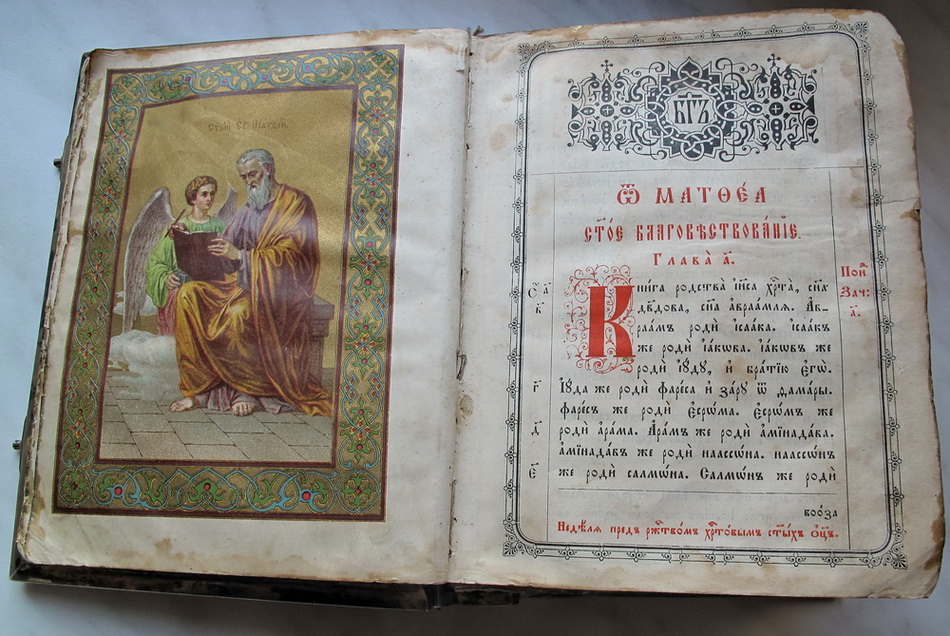 БГ҃Ъ
Ѿ МАТѲЕ́А
СТ҃О́Е БЛАГОВѢСТВОВА́НЇЕ.
Глава̀ а҃.
Кни́га родства̀ і҆и҃са хрⷭ҇та̀, сн҃а
дв҃дова, сн҃а а҆враа́мля. А҆в-
раа́мъ родѝ і҆саа́ка. і҆саа́къ
же родѝ і҆а́кѡва. і҆а́кѡвъ же
родѝ і҆ꙋ́дꙋ, и҆ бра́тїю є҆гѡ̀.
І҆ꙋ́да же родѝ фаре́са и҆ за́рꙋ ѿ ѳама́ры.
фаре́съ же родѝ є҆срѡ́ма. є҆срѡ́мъ же
родѝ а҆ра́ма. А҆ра́мъ же родѝ а҆мїнада́ва.
а҆мїнада́въ же родѝ наассѡ́на. наассѡ́нъ
же родѝ салмѡ́на. Салмѡ́нъ же родѝ
воо́за
Недѣ́ля пред̾ рж҃тво́мъ хрⷭ҇то́вымъ ст҃ы́хъ ѻ҆ц҃ъ.
в҃
г҃
д҃
є҃
Зач:
а҃.